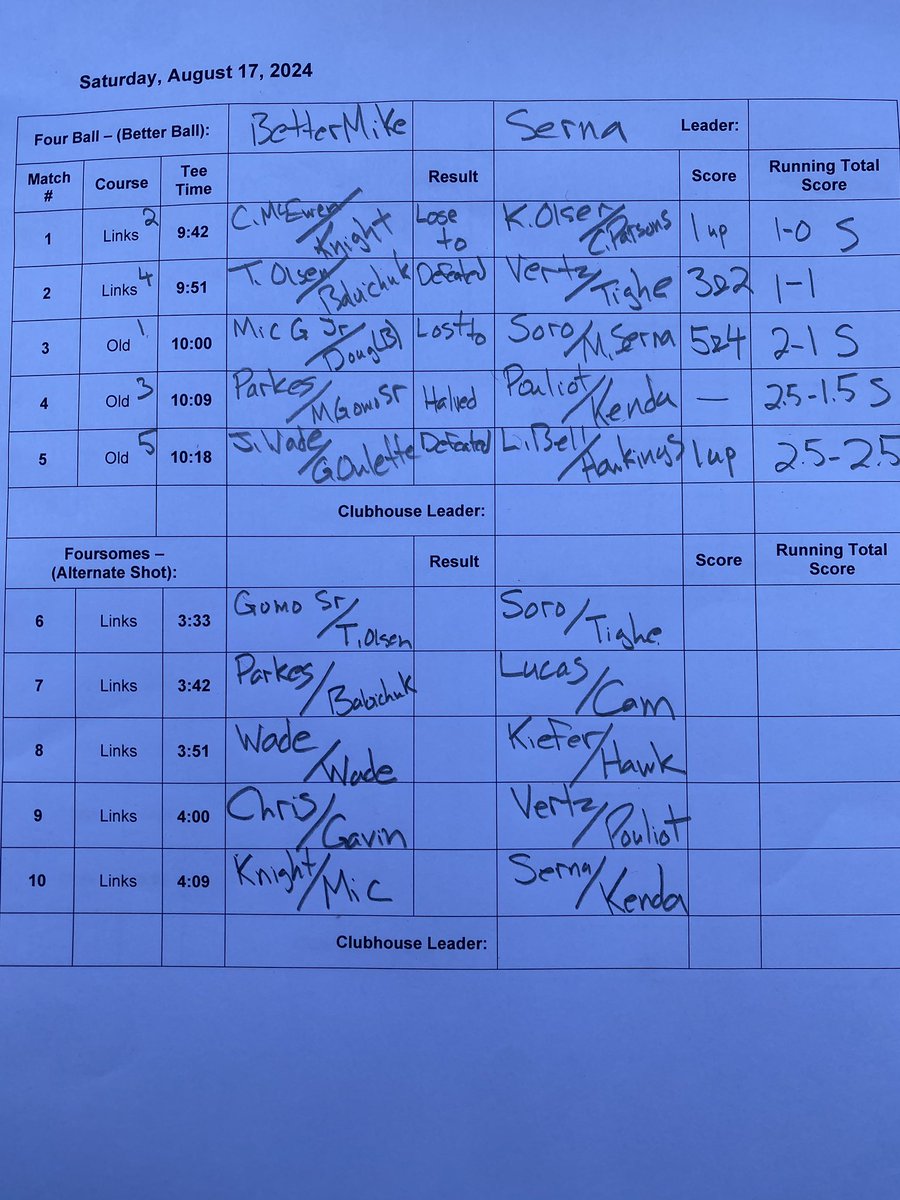 Saturday, August 17, 2024
Four Ball – (Better Ball): BetterMike Serna Leader:
Match # Course Tee Time Result Score Running Total Score
1 Links 2 9:42 C. McEwen/Knight Lose to K. Olser/C. Parsons 1 up 1-0 S
2 Links 4 9:51 T. Olsen/Babichuk Defeated Vertz/Tighe 3&2 1-1
3 Old 1 10:00 Mic G Jr/Doug(B) Lost to Soro/M. Serna 5&4 2-1 S
4 Old 3 10:09 Parkes/M Gomo Sr Halved Pouliot/Kenda — 2.5-1.5 S
5 Old 5 10:18 J. Wade/G Oulette Defeated L. Bell/Hawkings 1 up 2.5-2.5
Clubhouse Leader:
Foursomes – (Alternate Shot): Result Score Running Total Score
6 Links 3:33 Gomo Sr/T. Olsen Soro/Tighe
7 Links 3:42 Parkes/Babichuk Lucas/Cam
8 Links 3:51 Wade/Wade Kiefer/Hawk
9 Links 4:00 Chris/Gavin Vertz/Pouliot
10 Links 4:09 Knight/Mic Serna/Kenda
Clubhouse Leader: